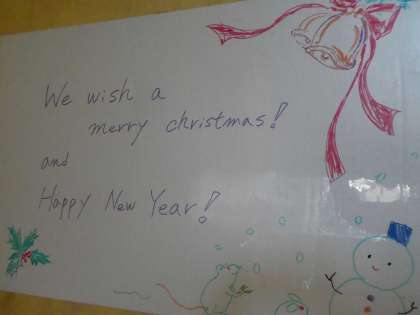 We wish a
merry christmas!
and
Happy New Year!